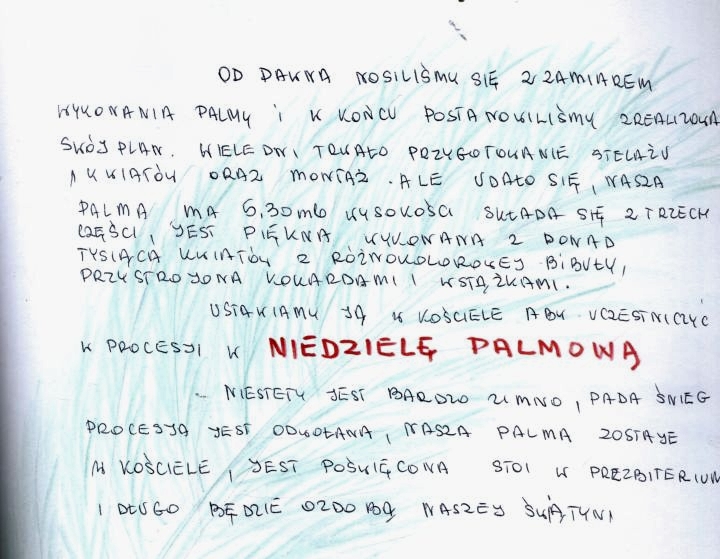 OD DAWNA NOSILIŚMY SIĘ Z ZAMIAREM
WYKONANIA PALMY i W KOŃCU POSTANOWILIŚMY ZREALIZOWA
SWÓJ PLAN. WIELE DNI TRWAŁO PRZYGOTOWANIE STELAŻU
I KWIATÓW ORAZ MONTAŻ. ALE UDAŁO SIĘ, NASZA
PALMA MA 6,30 mb WYSOKOŚCI SKŁADA SIĘ Z TRZECH
CZĘŚCI, JEST PIĘKNA WYKONANA Z PONAD
TYSIĄCA KWIATÓW Z RÓŻNOKOLOROWEJ BIBUŁY,
PRZYSTROJONA KOKARDAMI I WSTĄŻKAMI.
USTAWIAMY JĄ W KOŚCIELE ABY UCZESTNICZYĆ
W PROCESJI W NIEDZIELĘ PALMOWĄ
NIESTETY JEST BARDZO ZIMNO, PADA ŚNIEG
PROCESJA JEST ODWOŁANA, NASZA PALMA ZOSTAJE
W KOŚCIELE, JEST POŚWIĘCONA STOI W PREZBITERIUM
I DŁUGO BĘDZIE OZDOBĄ NASZEJ ŚWIĄTYNI